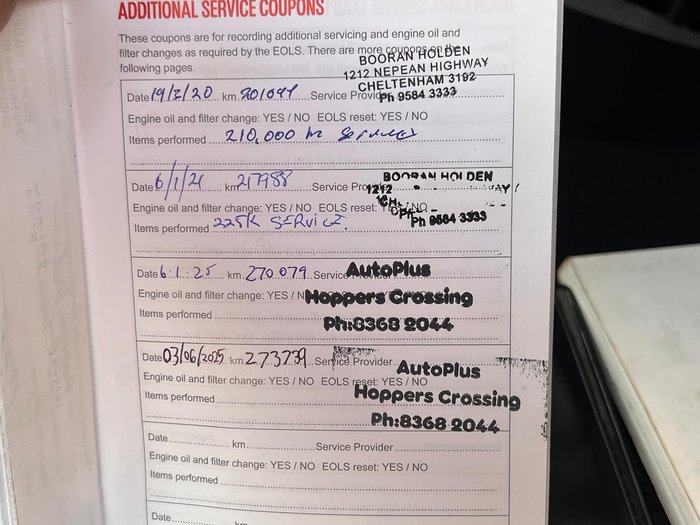 ADDITIONAL SERVICE COUPONS
These coupons are for recording additional servicing and engine oil and
filter changes as required by the EOLS. There are more coupons on the
following pages.
BOORAN HOLDEN
1212 NEPEAN HIGHWAY
CHELTENHAM 3192
Ph 9584 3333
Date 19/2/20 km 201099 Service Provider
Engine oil and filter change: YES / NO EOLS reset: YES / NO
Items performed 210,000 km Service
BOORAN HOLDEN
1212
Ph 9584 3333
Date 6/1/21 km 217988 Service Provider
Engine oil and filter change: YES / NO EOLS reset: YES / NO
Items performed 225K SERVICE.
AutoPlus
Hoppers Crossing
Ph:8368 2044
Date 6.1.25 km 270079 Service Provider
Engine oil and filter change: YES / N
Items performed
AutoPlus
Hoppers Crossing
Ph:8368 2044
Date 03/06/2025 km 273739 Service Provider
Engine oil and filter change: YES / NO EOLS reset: YES / NO
Items performed
Date km Service Provider
Engine oil and filter change: YES / NO EOLS reset: YES / NO
Items performed
Date km